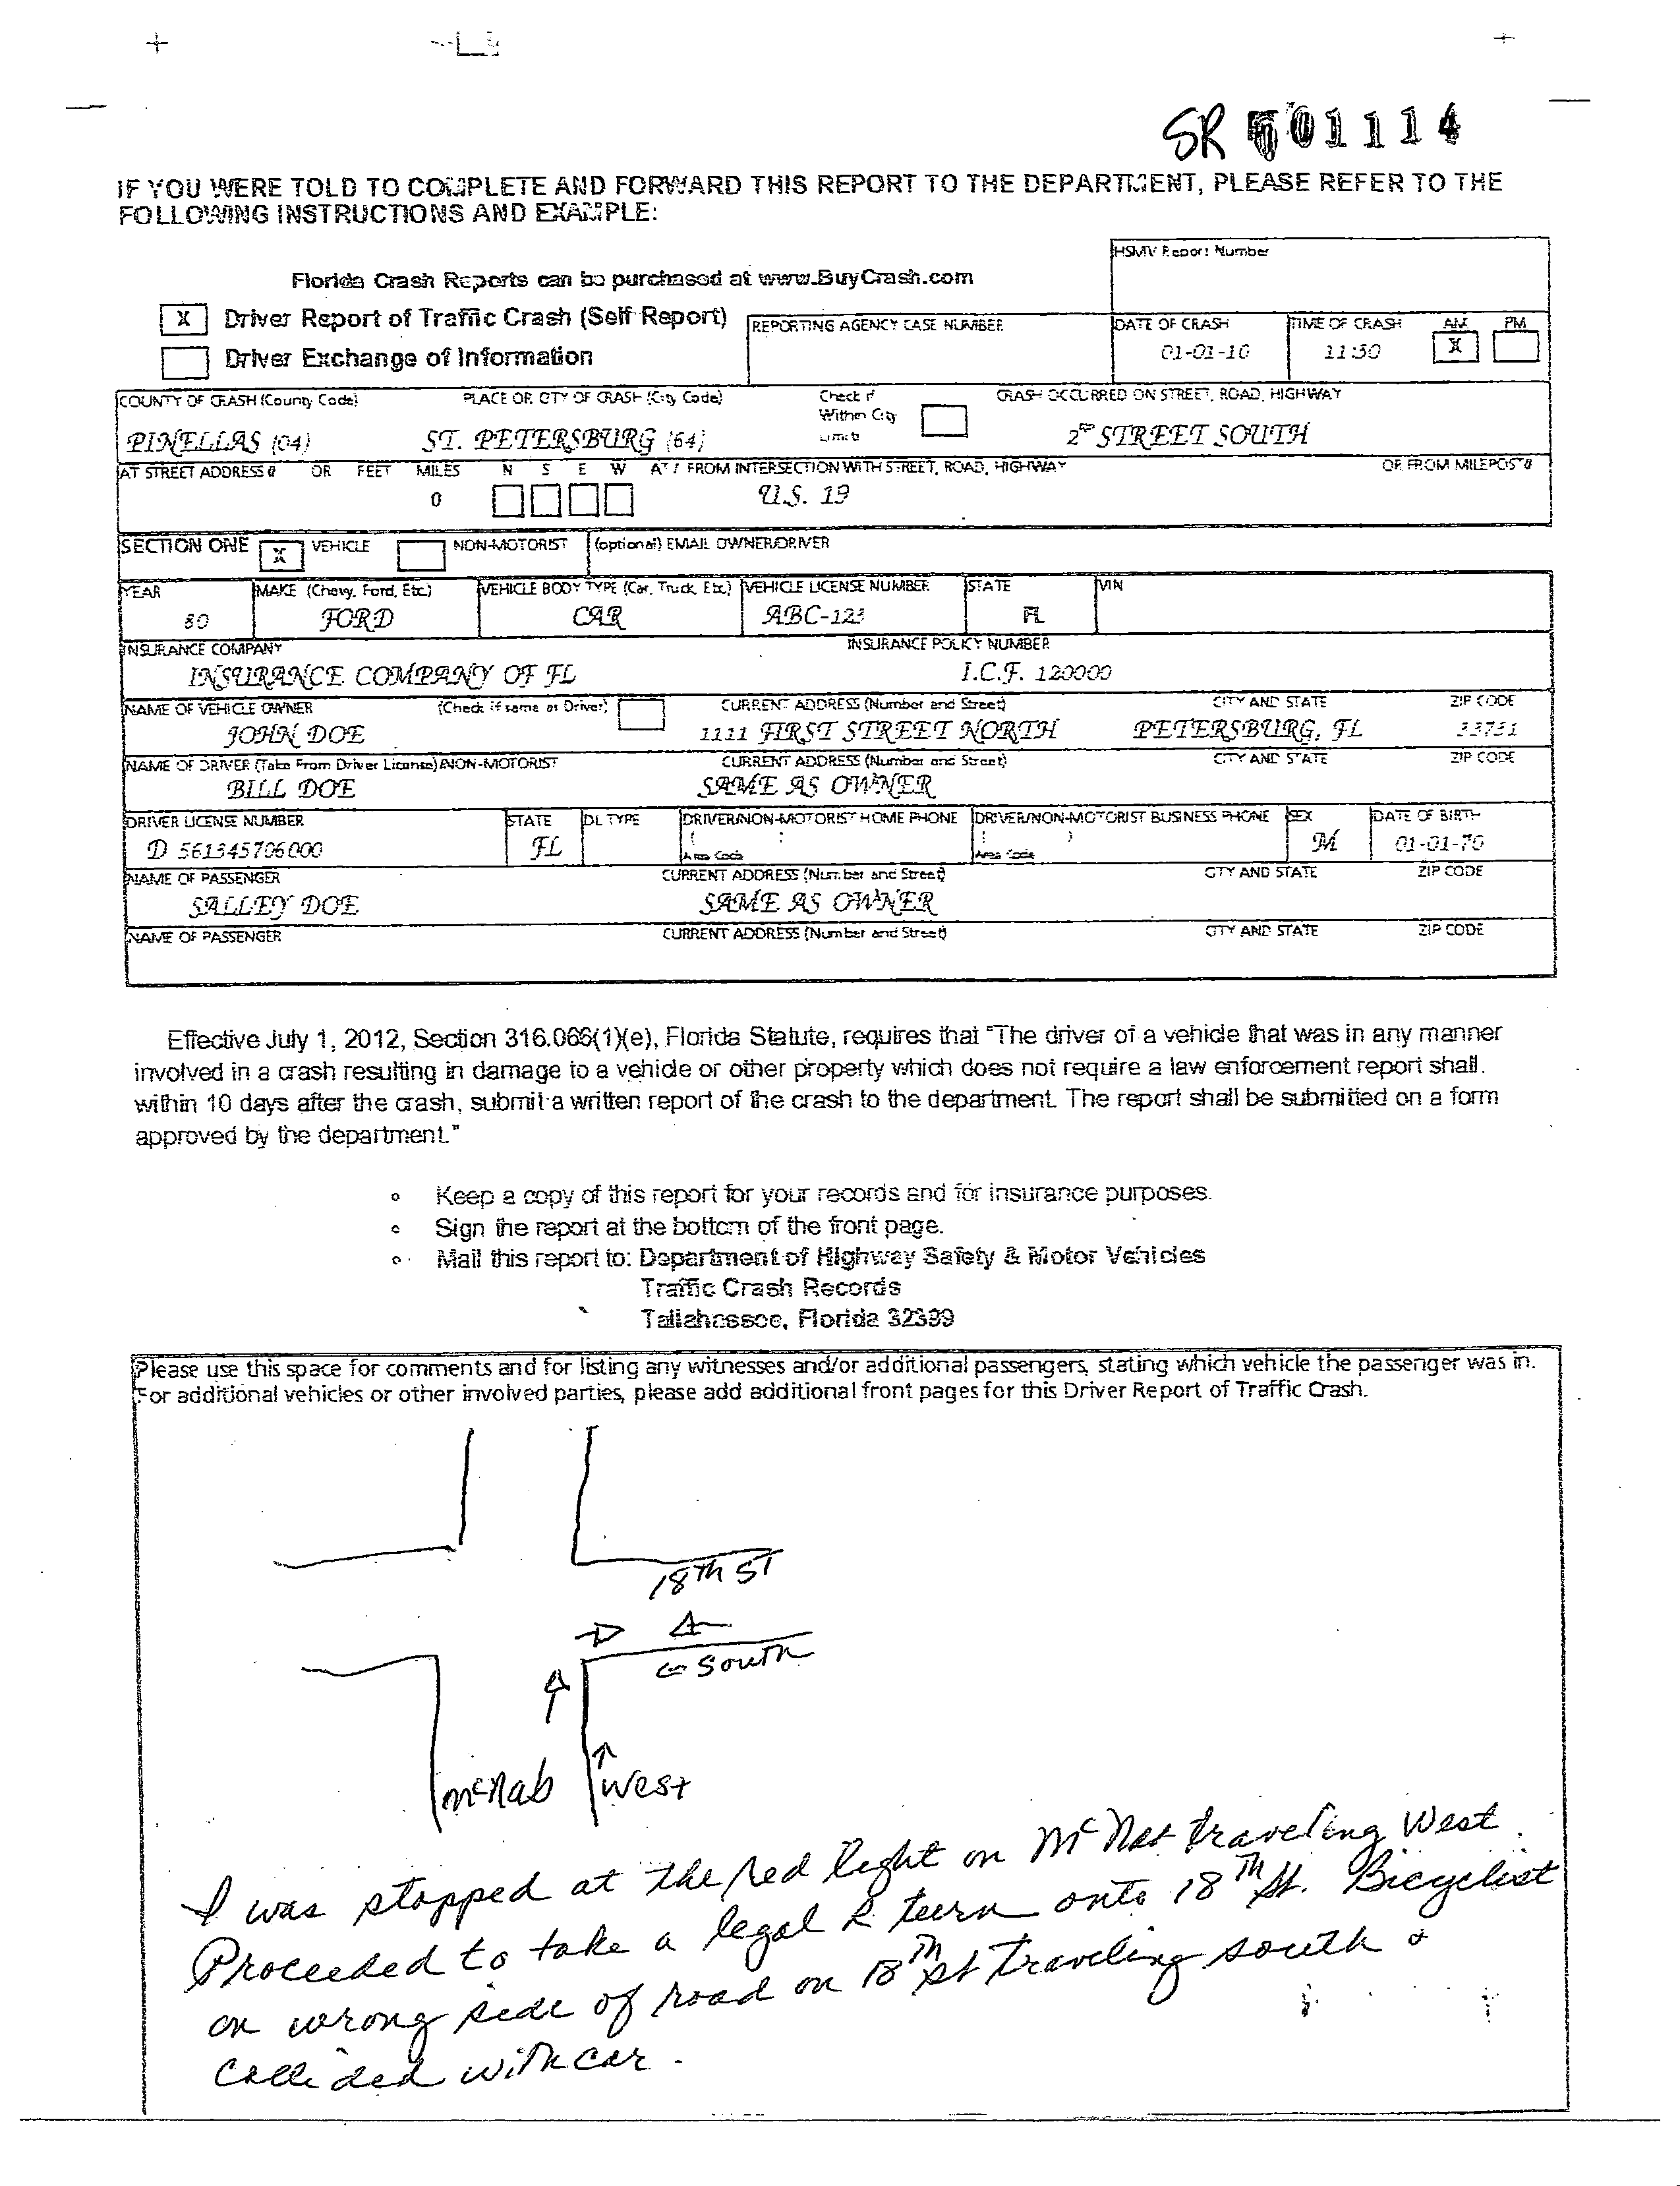 SR 501114
IF YOU WERE TOLD TO COMPLETE AND FORWARD THIS REPORT TO THE DEPARTMENT, PLEASE REFER TO THE
FOLLOWING INSTRUCTIONS AND EXAMPLE:
HSMV Report Number
Florida Crash Reports can be purchased at www.BuyCrash.com
X Driver Report of Traffic Crash (Self Report)
Driver Exchange of Information
REPORTING AGENCY CASE NUMBER
DATE OF CRASH
01-01-10
TIME OF CRASH
11:30
AM
X
PM
COUNTY OF CRASH (County Code)
PINELLAS (04)
PLACE OR CITY OF CRASH (City Code)
ST. PETERSBURG (64)
Check if
Within City
Limits
CRASH OCCURRED ON STREET, ROAD, HIGHWAY
2ND STREET SOUTH
AT STREET ADDRESS # OR FEET MILES N S E W AT / FROM INTERSECTION WITH STREET, ROAD, HIGHWAY OR FROM MILEPOST #
0 U.S. 19
SECTION ONE X VEHICLE NON-MOTORIST (optional) EMAIL OWNER/DRIVER
YEAR MAKE (Chevy, Ford, Etc.) VEHICLE BODY TYPE (Car, Truck, Etc.) VEHICLE LICENSE NUMBER STATE VIN
80 FORD CAR ABC-123 FL
INSURANCE COMPANY INSURANCE POLICY NUMBER
INSURANCE COMPANY OF FL I.C.F. 120000
NAME OF VEHICLE OWNER (Check if same as Driver) CURRENT ADDRESS (Number and Street) CITY AND STATE ZIP CODE
JOHN DOE 1111 FIRST STREET NORTH PETERSBURG, FL 33731
NAME OF DRIVER (Take From Driver License)/NON-MOTORIST CURRENT ADDRESS (Number and Street) CITY AND STATE ZIP CODE
BILL DOE SAME AS OWNER
DRIVER LICENSE NUMBER STATE DL TYPE DRIVER/NON-MOTORIST HOME PHONE DRIVER/NON-MOTORIST BUSINESS PHONE SEX DATE OF BIRTH
D 561345706000 FL ( ) M 01-01-70
Area Code Area Code
NAME OF PASSENGER CURRENT ADDRESS (Number and Street) CITY AND STATE ZIP CODE
SALLEY DOE SAME AS OWNER
NAME OF PASSENGER CURRENT ADDRESS (Number and Street) CITY AND STATE ZIP CODE
Effective July 1, 2012, Section 316.066(1)(e), Florida Statute, requires that "The driver of a vehicle that was in any manner
involved in a crash resulting in damage to a vehicle or other property which does not require a law enforcement report shall.
within 10 days after the crash, submit a written report of the crash to the department. The report shall be submitted on a form
approved by the department."
Keep a copy of this report for your records and for insurance purposes.
Sign the report at the bottom of the front page.
Mail this report to: Department of Highway Safety & Motor Vehicles
Traffic Crash Records
Tallahassee, Florida 32399
Please use this space for comments and for listing any witnesses and/or additional passengers, stating which vehicle the passenger was in.
For additional vehicles or other involved parties, please add additional front pages for this Driver Report of Traffic Crash.
18TH ST
← South
McNab ↑ West
I was stopped at the red light on McNab traveling West.
Proceeded to take a legal R turn onto 18TH St. Bicyclist
on wrong side of road on 18TH St traveling south &
collided with car.